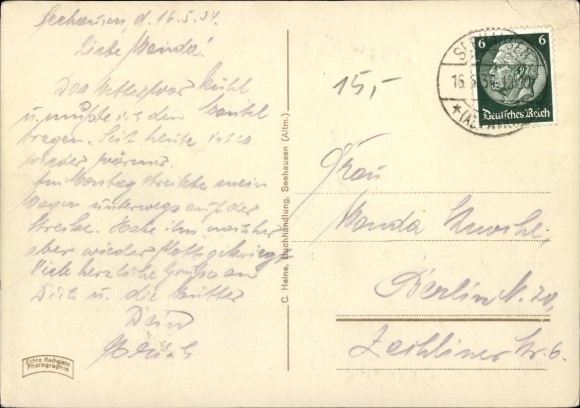 Seehausen, d. 16.5.34.
Liebe Wanda!
Das Wetter war kühl
u. mußte ich den Mantel
tragen. Seit heute ist es
wieder wärmer.
Am Montag streikte mein
Wagen unterwegs auf der
Strecke. Habe ihn nachher
aber wieder flott gekriegt.
Viele herzliche Grüße an
Dich u. die Mutter
Dein
15,-
C. Heine, Buchhandlung, Seehausen (Altm.)
Echte Hochglanz
Photographie
6 6
Deutsches Reich
SEEHAUSEN
16.5.34
(ALTMARK)
Frau
Wanda
Berlin N. 20,
Zechliner Str. 6.